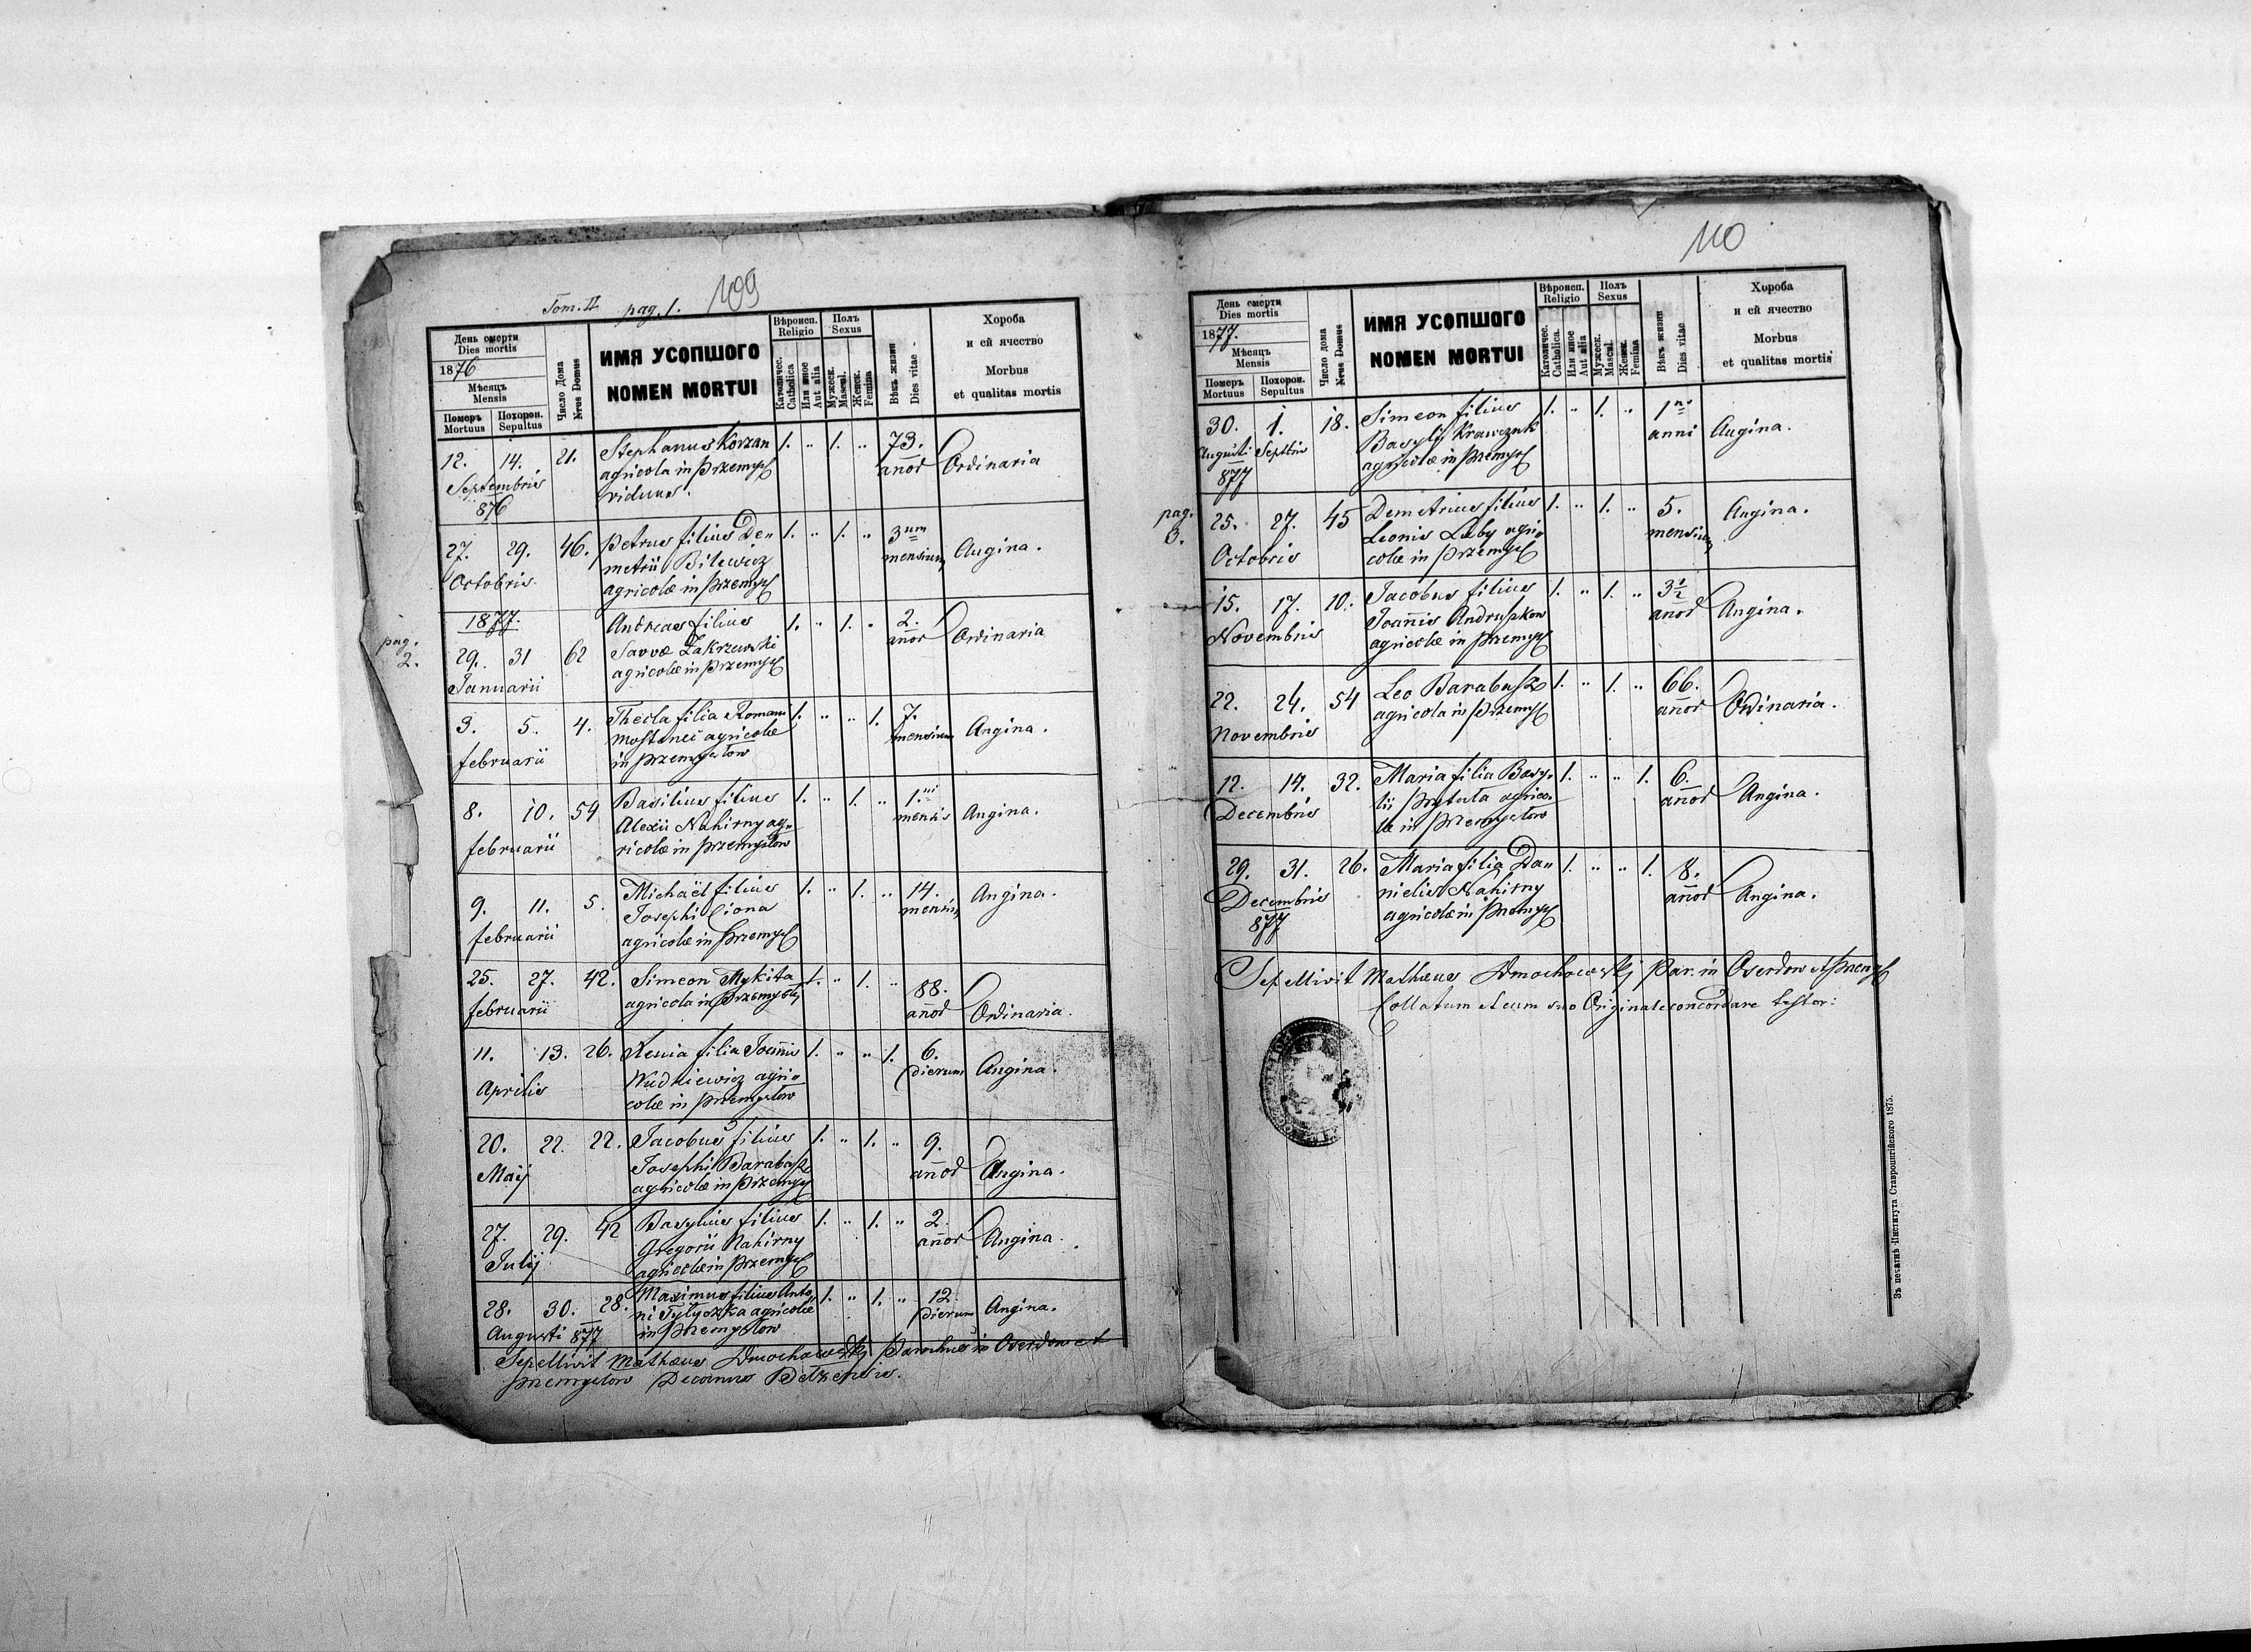 Tom. II pag. 1. 109
День смерти
Dies mortis
1876
Мѣсяцъ
Mensis
Померъ Mortuus
Похорон. Sepultus
Число Дома
Nrus Domus
ИМЯ УСОПШОГО
NOMEN MORTUI
Вѣроисп.
Religio
Католичес.
Catholica
Или иное
Aut alia
Полъ
Sexus
Мужеск.
Mascul.
Женск.
Femina
Вѣкъ жизни
Dies vitae
Хороба
и ей ячество
Morbus
et qualitas mortis
12. 14. 21. Stephanus Korzan 1. „ 1. „ 73.
Septembris agricola in Przemysł anor Ordinaria
876 viduus.
27. 29. 46. Petrus filius De= 1. „ 1. „ 3um
Octobris metrii Bilewicz mensium Angina.
agricolæ in Przemysł
1877. Andreas filius 1. „ 1. „ 2.
pag. 2. 29. 31 62 Savvæ Zakrzewski anor Ordinaria
Januarii agricolæ in Przemysł
3. 5. 4. Thecla filia Romani 1. „ „ 1. 7.
februarii agricolæ mensium Angina.
in Przemysłow
8. 10. 54 Basilius filius 1. „ 1. „ 1.ni
februarii Alexii Nahirny ag= mensis Angina.
ricolæ in Przemysłow
9. 11. 5. Michaël filius 1. „ 1. „ 14.
februarii Josephi Ciona mensium Angina.
agricolæ in Przemysł
25. 27. 42. Simeon Mykita 1. „ 1. „ 88.
februarii agricola in Przemysł anor Ordinaria.
11. 13. 26. Xenia filia Joannis 1. „ „ 1. 6.
Aprilis Wudkiewicz agri= dierum Angina.
colæ in Przemysłow
20. 22. 22. Jacobus filius 1. „ 1. „ 9.
Maij Josephi Barabasz anor Angina.
agricolæ in Przemysł
27. 29. 42 Basylius filius 1. „ 1. „ 2.
Julij Gregorii Nahirny anor Angina.
agricolæ in Przemysł
28. 30. 28. Maximus filius Anto= 1. „ 1. „ 12.
Augusti 877 ni Tytyczka agricolæ dierum Angina.
in Przemysłow
Sepellivit Mathæus Dmochowskij Parochus in Oserdow et
Przemysłow Decanus Belzensis.
110
День смерти
Dies mortis
1877.
Мѣсяцъ
Mensis
Померъ Mortuus
Похорон. Sepultus
Число дома
Nrus Domus
ИМЯ УСОПШОГО
NOMEN MORTUI
Вѣроисп.
Religio
Католичес.
Catholica.
Или иное
Aut alia
Полъ
Sexus
Мужеск.
Mascul.
Женск.
Femina
Вѣкъ жизни
Dies vitae
Хороба
и ей ячество
Morbus
et qualitas mortis
30. 1. 18. Simeon filius 1. „ 1. „ 1ni
Augusti Septbris Basylij Krawczuk anni Angina.
877 agricolæ in Przemysł
pag. 3. 25. 27. 45 Demetrius filius 1. „ 1. „ 5.
Octobris Leonis Luby agri= mensium Angina.
colæ in Przemysł
15. 17. 10. Jacobus filius 1. „ 1. „ 3½
Novembris Joannis Andruszkow anor Angina.
agricolæ in Przemysł
22. 24. 54 Leo Barabasz 1. „ 1. „ 66.
Novembris agricola in Przemysł anor Ordinaria.
12. 14. 32. Maria filia Basy= 1. „ „ 1. 6.
Decembris lii Prytuła agrico= anor Angina.
læ in Przemysłow
29. 31. 26. Maria filia Da= 1. „ „ 1. 8.
Decembris nielis Nahirny anor Angina.
877 agricolæ in Przemysł
Sepellivit Mathæus Dmochowskij Par. in Oserdow et Przemysł
Collatum et cum suo Originale concordare testor:
Зъ печатнѣ Института Ставропигійского 1875.